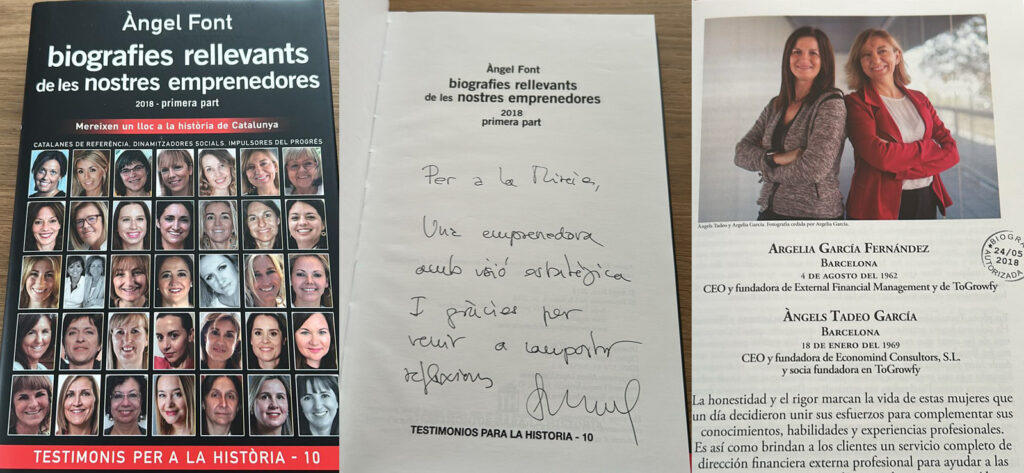 Àngel Font
biografies rellevants
de les nostres emprenedores
2018 - primera part
Mereixen un lloc a la història de Catalunya
CATALANES DE REFERÈNCIA, DINAMITZADORES SOCIALS, IMPULSORES DEL PROGRÉS
TESTIMONIS PER A LA HISTÒRIA - 10
Àngel Font
biografies rellevants
de les nostres emprenedores
2018
primera part
Per a la Mireia,
Una emprenedora
amb visió estratègica
I gràcies per
venir a compartir
reflexions
TESTIMONIOS PARA LA HISTORIA - 10
Àngels Tadeo y Argelia García. Fotografía cedida por Argelia García.
ARGELIA GARCÍA FERNÁNDEZ
BARCELONA
4 DE AGOSTO DEL 1962
CEO y fundadora de External Financial Management y de ToGrowfy
BIOGRA
24/05
2018
AUTORIZADA
ÀNGELS TADEO GARCÍA
BARCELONA
18 DE ENERO DEL 1969
CEO y fundadora de Economind Consultors, S.L.
y socia fundadora en ToGrowfy
La honestidad y el rigor marcan la vida de estas mujeres que
un día decidieron unir sus esfuerzos para complementar sus
conocimientos, habilidades y experiencias profesionales.
Es así como brindan a los clientes un servicio completo de
dirección financiera externa profesional para ayudar a las